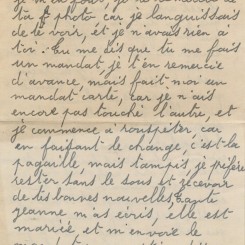 ta photo car je languissais
de te voir, et je n'avais rien à
toi. Tu me dis que tu me fais
un mandat, je t'en remercie
d'avance, mais fait moi un
mandat carte, car je n'ais
encore pas touché l'autre, et
je commence a rouspéter, car
en faisant le change, c'est la
pagaille, mais tampis, je préfère
rester sans le sous et recevoir
de tes bonnes nouvelles. Tante
Jeanne m'as écris, elle est
mariée, et m'envoie le